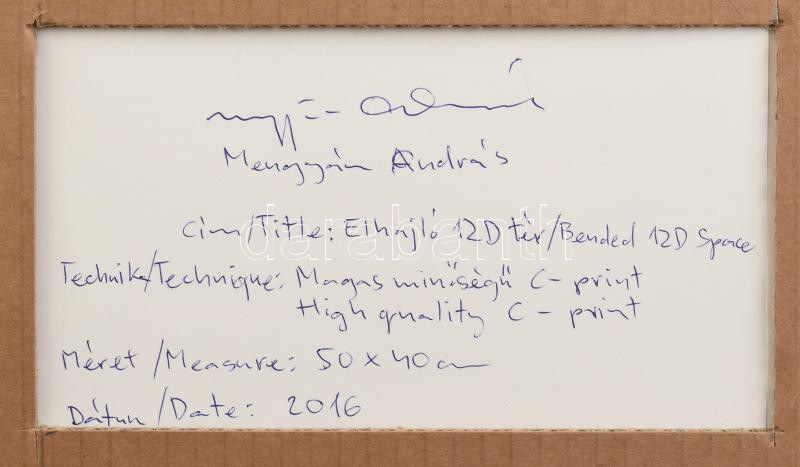 Mengyán András
Cím/Title: Elhajló 12D tér/Bended 12D Space
darabanth
Technika/Technique: Magas minőségű C-print
High quality C-print
Méret/Measure: 50x40cm
Dátum/Date: 2016